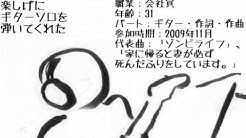 楽しげに
ギターソロを
弾いてくれた
職業：会社員
年齢：31
パート：ギター・作詞・作曲
参加時期：2009年11月
代表曲：「ゾンビライフ」、
「家に帰ると妻が必ず
死んだふりをしています。」